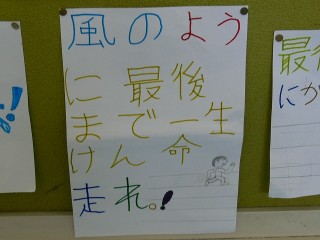 風のよう
に最後
まで一生
けん命
走れ。!
最後
にか
!